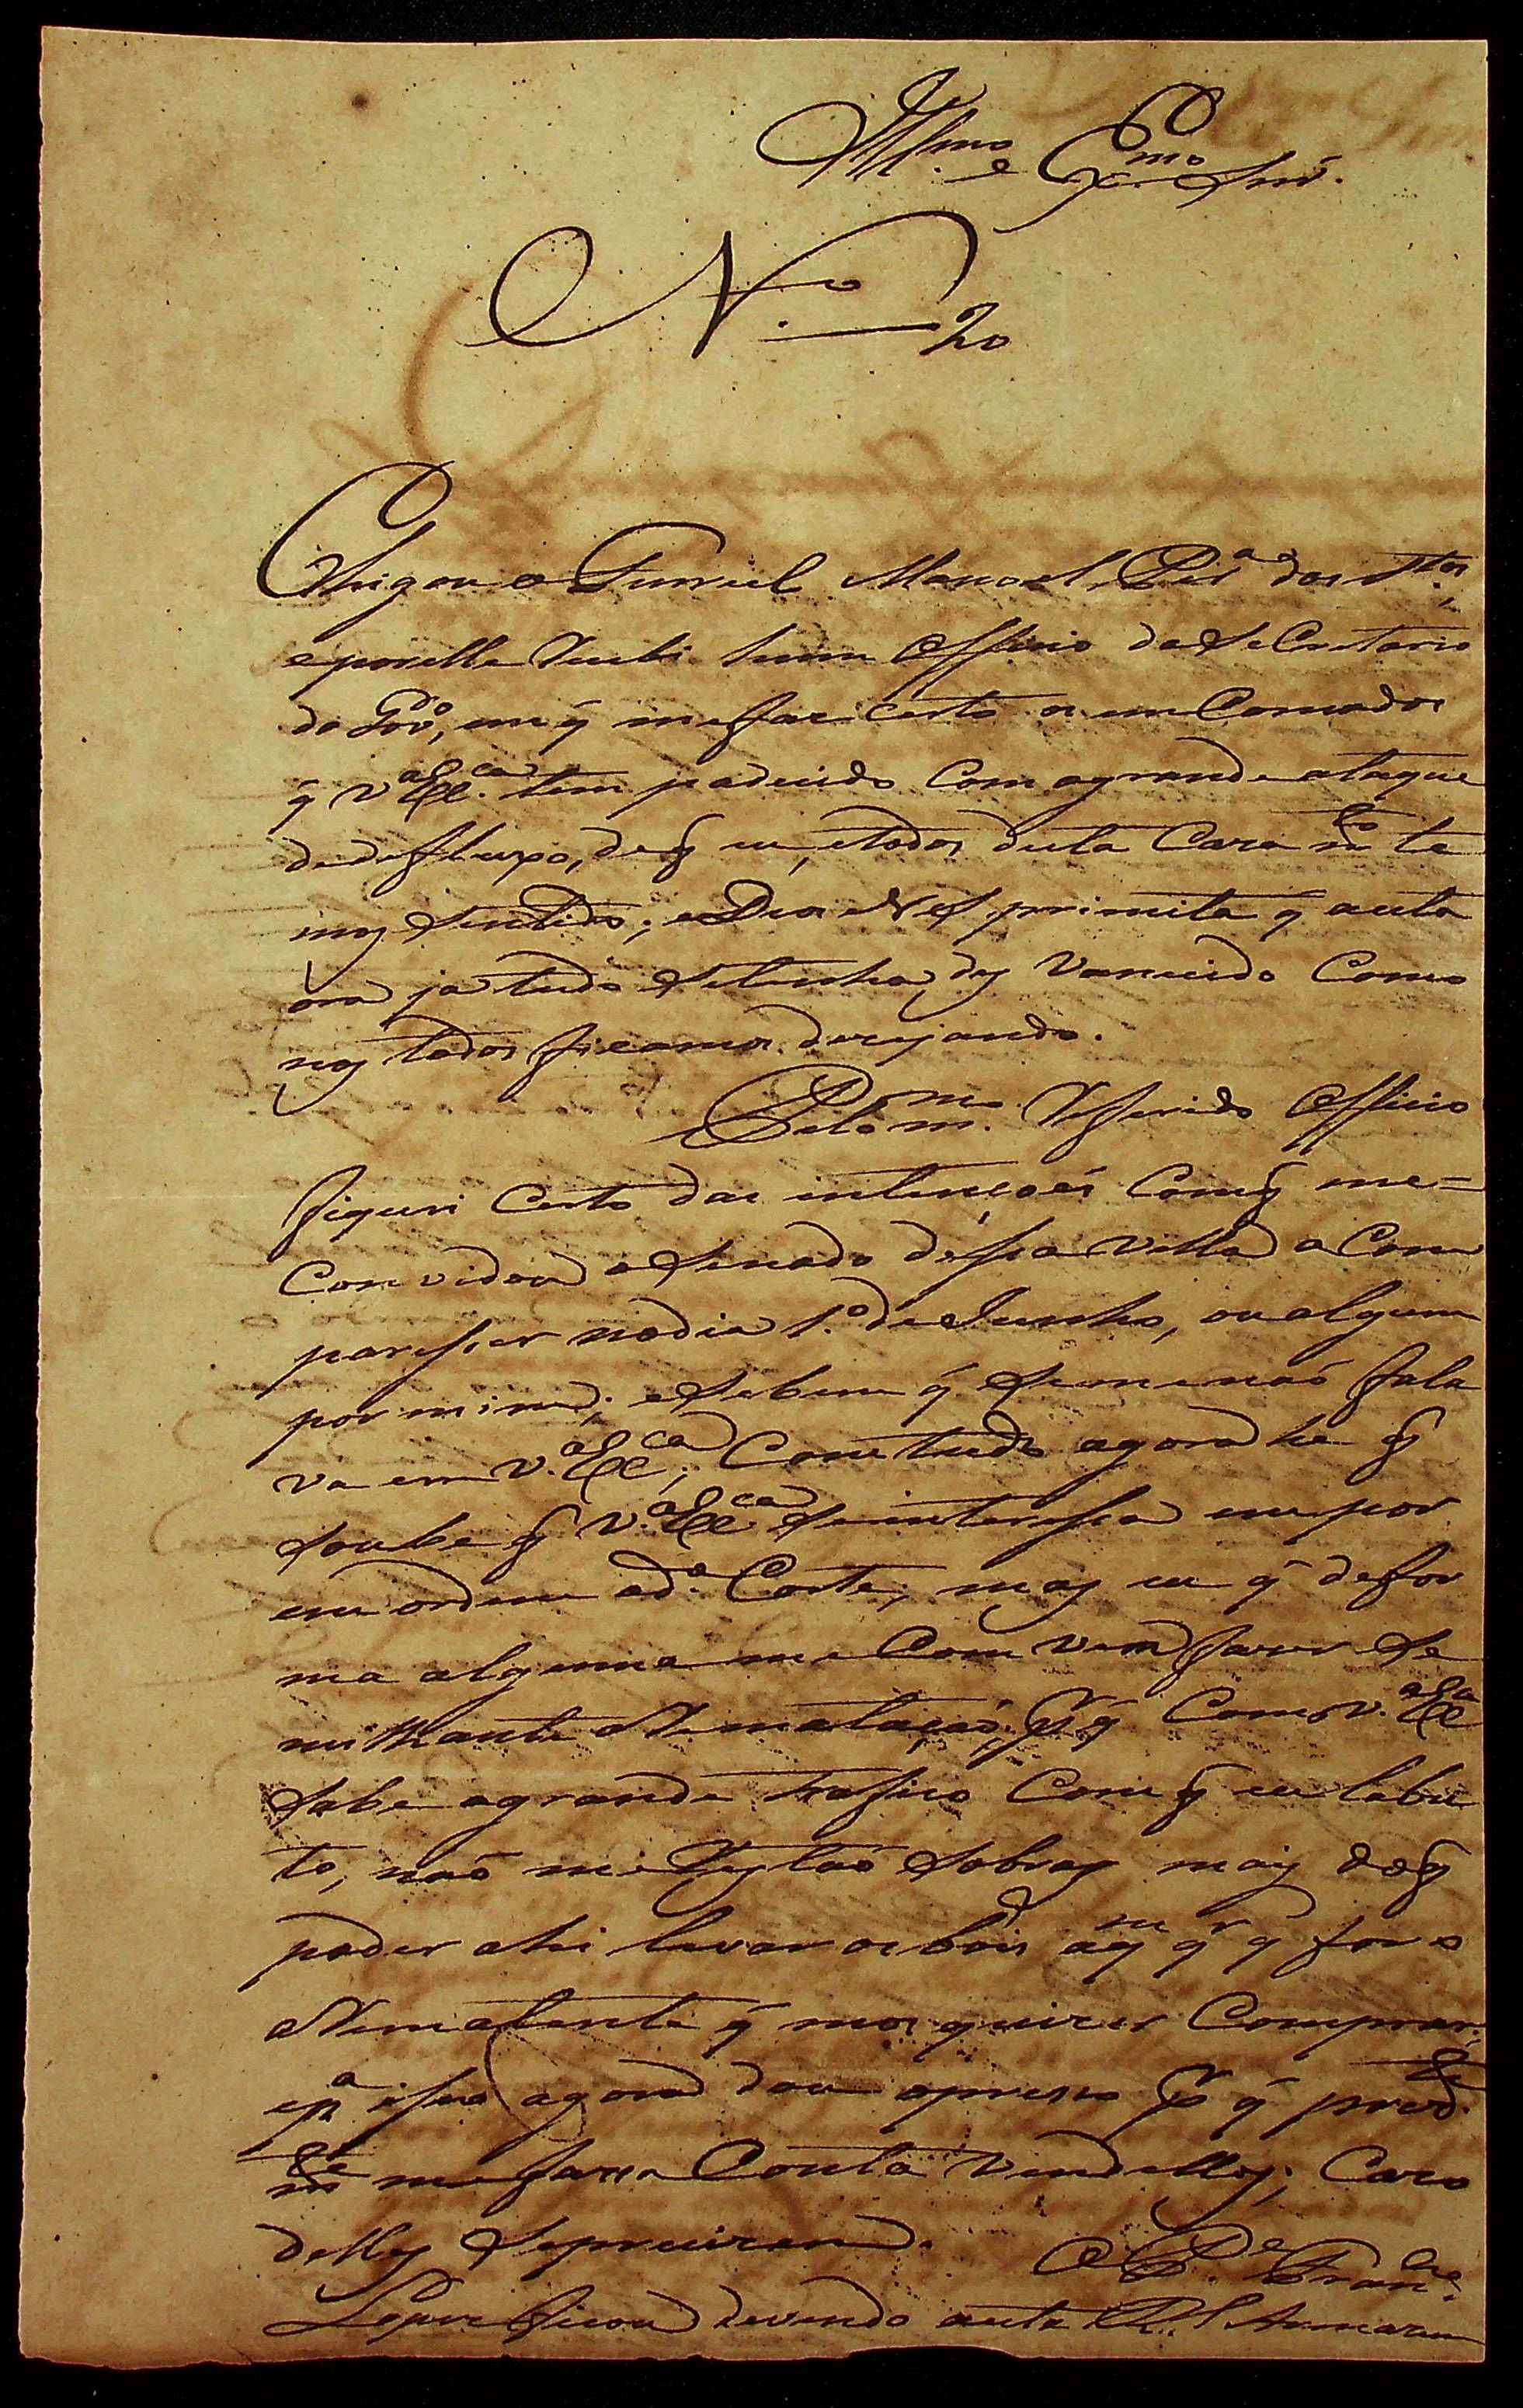 Illmo. e Exmo. Snr.
N.o 20
Chigou o Furriel Manoel Pir.a dos S.tos,
e por elle Recebi hum Officio do Secretario
do Gov.o, em q̃ me faz certo os emComodos
q̃ V.a Ex.ca tem padecido Com a grande ataque
de defluxo, de q̃ eu, e todos desta Caza m.to te
mos Sentido; e Deos N S primita q̃ a esta
ora ja tudo Se tenha des vanecido Como
nos todos ficamos dezejando.
Pelo m.mo Referido Officio
fiquei Certo das intençoẽs Com q̃ me=
Convidou o Senado dessa Villa a Com
paresser no dia 1.o de Junho, ou alguem
por mim; e Se bem q̃ Se me naõ fala
va em V.a Ex.ca; Comtudo agora he q̃
Soube q̃ V.a Ex.ca Se interessa em por
em ordem o d.o Corte; mas eu q̃ de for
ma alguma me Comvem fazer Se
milhante Rematação; p.r q̃ Como V.a Ex.ca
Sabe o grande trafico Com q̃ eu labu
to, naõ me Restaõ Sobras mais do q̃
poder ahi levar os bois a q.m q.r q̃ for o
Rematante q̃ mos quizer Comprar;
e p.a isso agora dou o presso p.r q̃ prez.te
m.te me fara Conta Vendellos; Cazo
delles Se precizem. O P.e Fran.co
Lopes ficou devendo a esta R.l Armazem